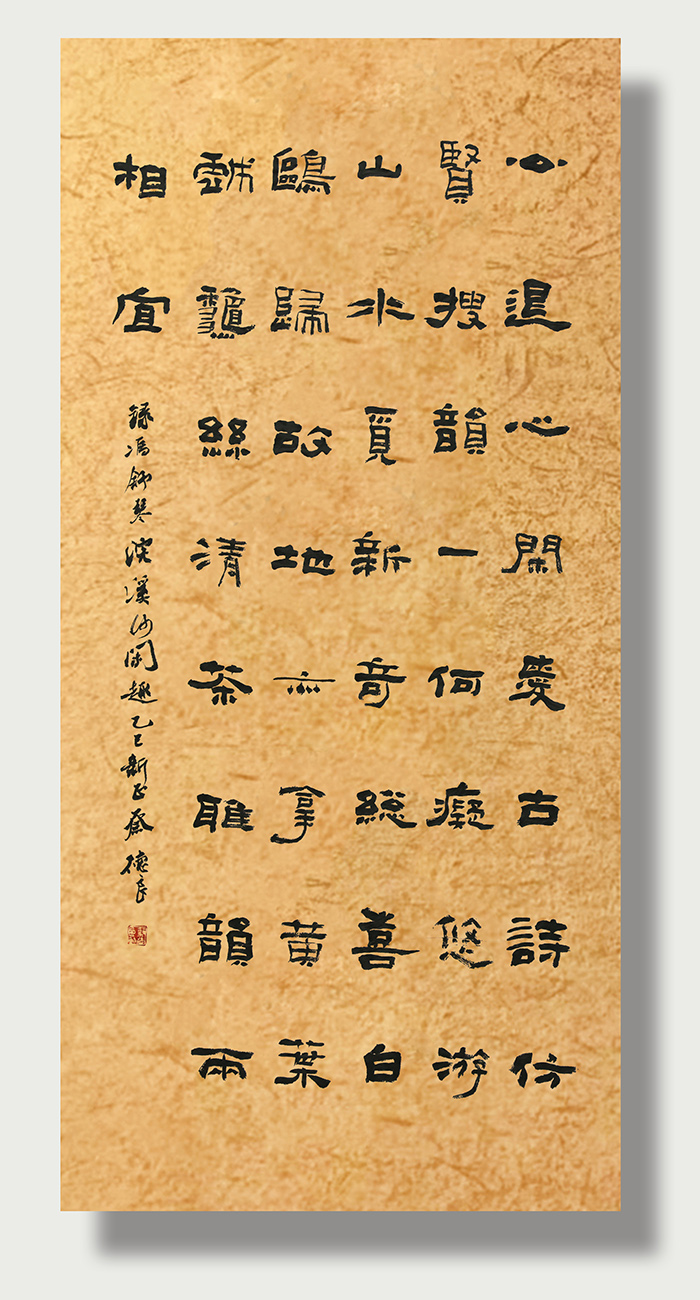 公退心閑愛古詩仿
賢搜韻一何癡悠游
山水覓新奇總喜白
鷗歸故地亦拿黃葉
戲絲清茶雅韻兩
相宜
錄馮舒琴浣溪沙閑趣乙巳新正蔡德良